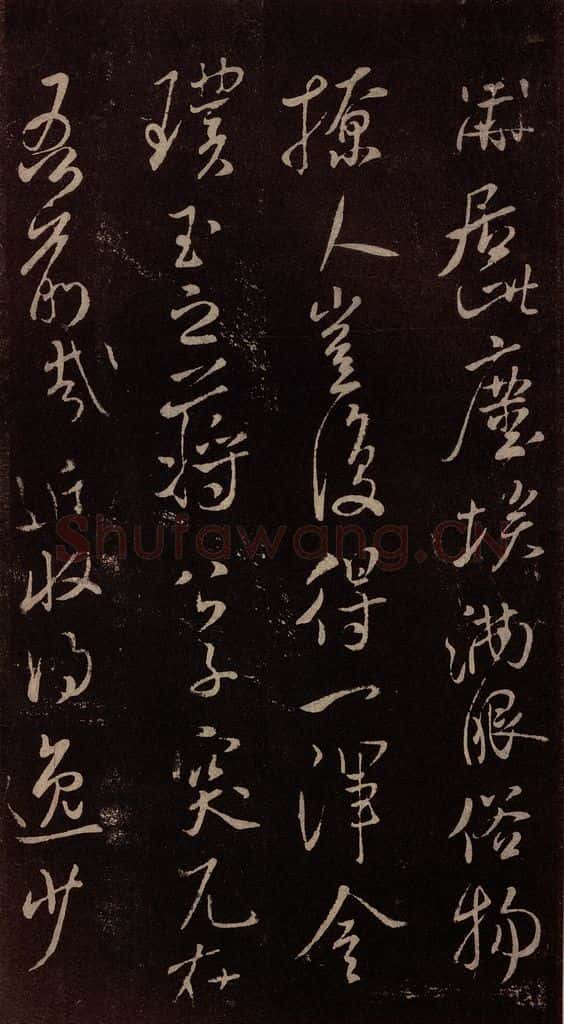 肅居此塵埃滿眼俗物
撩人豈復得一渾金
璞玉之蔣公子突兀在
吾前哉近收得逸少
Shufawang.CN